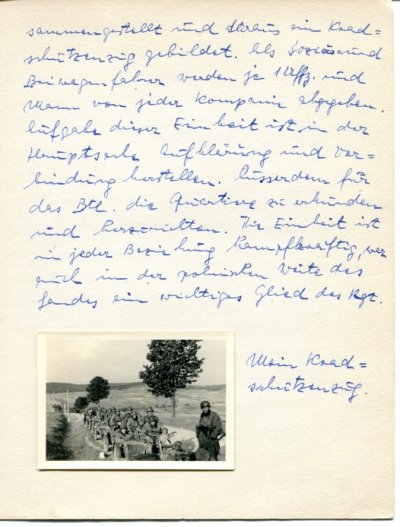 sammengestellt und daraus ein Krad=
schützenzug gebildet. Als Sozius und
Beiwagenfahrer werden je 1 Uffz. und
Mann von jeder Kompanie abgegeben.
Aufgabe dieser Einheit ist in der
Hauptsache Aufklärung und Ver=
bindung herstellen. Ausserdem für
das Btl. die Quartiere zu erkunden
und herzurichten. Die Einheit ist
in jeder Beziehung kampfkräftig, war
auch in der polnischen Weite des
Landes ein wichtiges Glied des Rgt.
Mein Krad=
schützenzug.